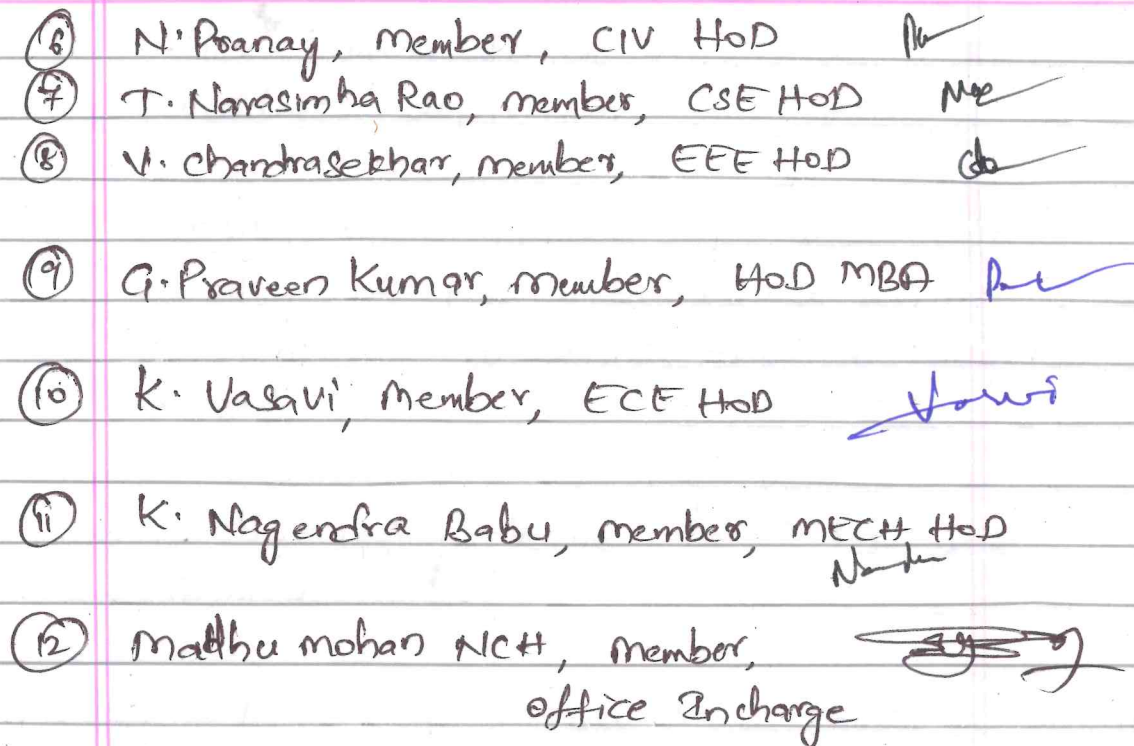 6 N. Pranay, member, CIV HoD
7 T. Narasimha Rao, member, CSE HoD
8 V. Chandrasekhar, member, EEE HoD
9 G. Praveen Kumar, member, HoD MBA
10 K. Vasavi, member, ECE HoD Vasavi
11 K. Nagendra Babu, member, MECH HoD
12 Madhu mohan NCH, member,
office Incharge